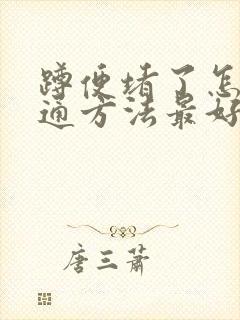 蹲便堵了怎
通方法最好
唐三萧